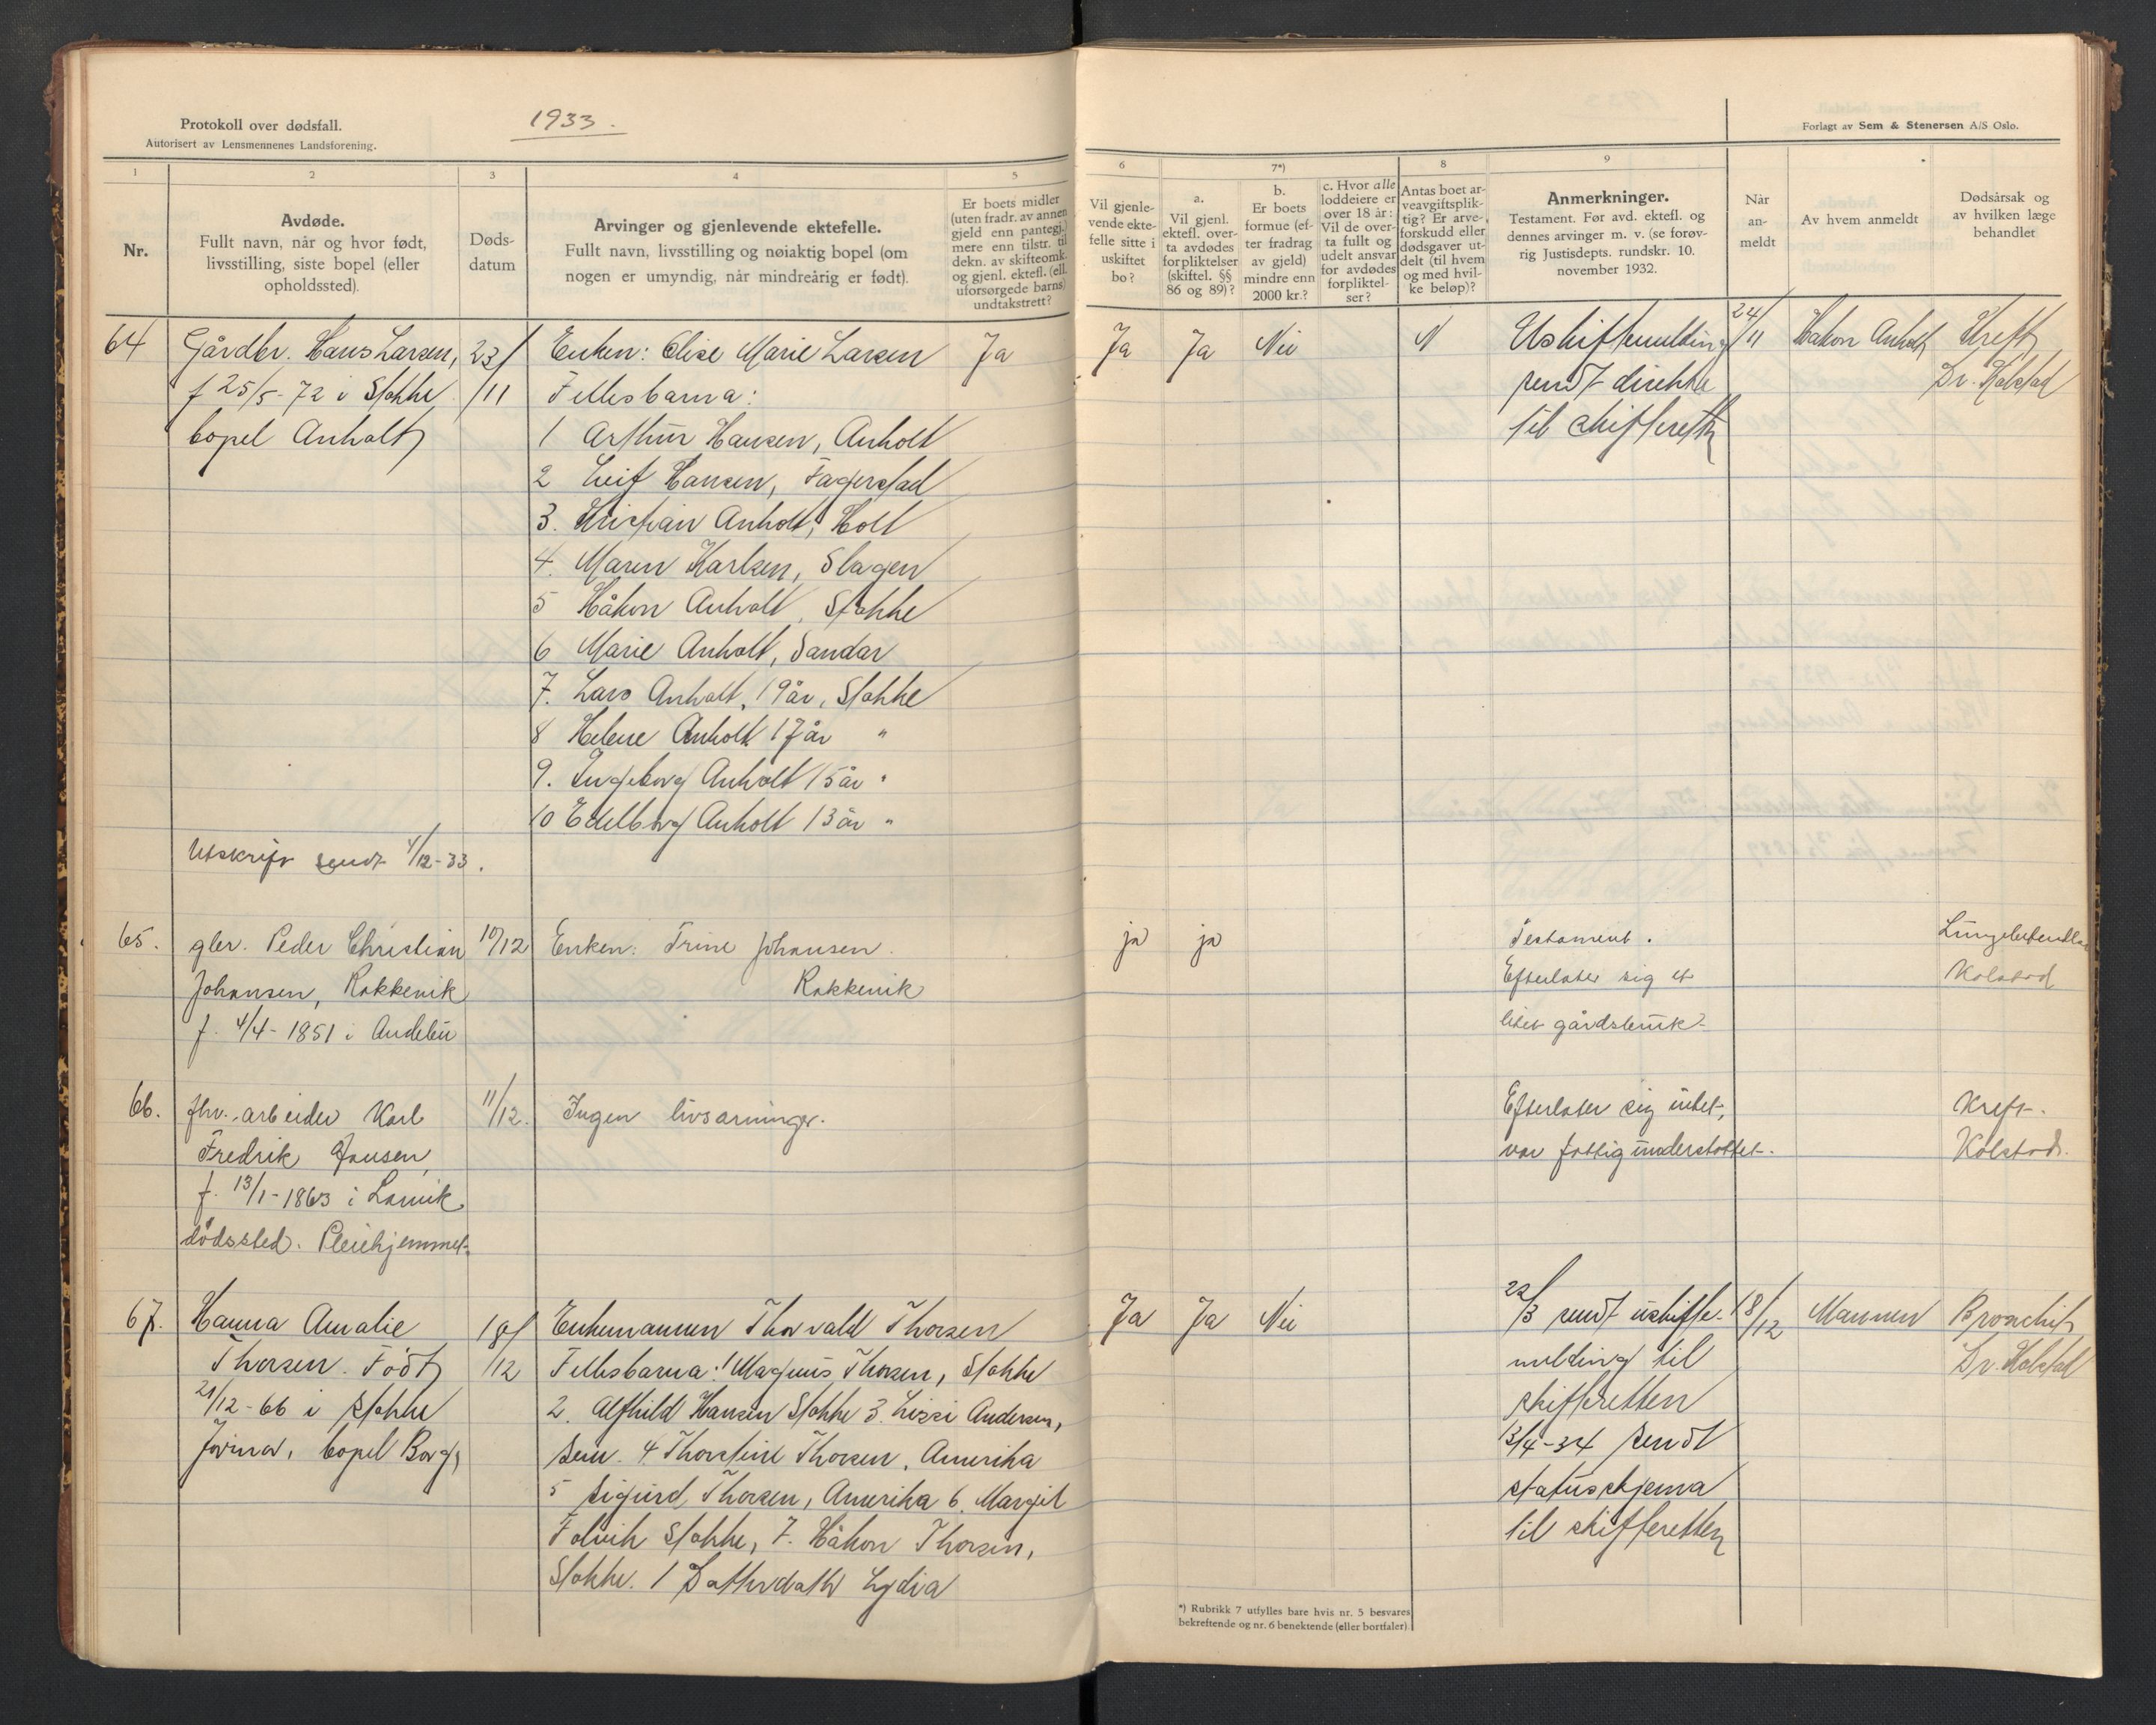 Protokoll over dødsfall.
Autorisert av Lensmennenes Landsforening.
1933.
Forlagt av Sem & Stenersen A/S Oslo.
1
2
3
4
5
6
7*)
8
9
Nr.
Avdøde.
Fullt navn, når og hvor født,
livsstilling, siste bopel (eller
opholdssted).
Døds-
datum
Arvinger og gjenlevende ektefelle.
Fullt navn, livsstilling og nøiaktig bopel (om
nogen er umyndig, når mindreårig er født).
Er boets midler
(uten fradr. av annen
gjeld enn pantegj.)
mere enn tilstr. til
dekn. av skifteomk.
og gjenl. ektef. (ell.
uforsørgede barns)
undtakstrett?
Vil gjenle-
vende ekte-
felle sitte i
uskiftet
bo?
a.
Vil gjenl.
ektefl. over-
ta avdødes
forpliktelser
(skiftel. §§
86 og 89)?
b.
Er boets
formue (ef-
ter fradrag
av gjeld)
mindre enn
2000 kr.?
c. Hvor alle
loddeiere er
over 18 år:
Vil de over-
ta fullt og
udelt ansvar
for avdødes
forpliktel-
ser?
Antas boet ar-
veavgiftsplik-
tig? Er arve-
forskudd eller
dødsgaver ut-
delt (til hvem
og med hvil-
ke beløp)?
Anmerkninger.
Testament. Før avd. ektefl. og
dennes arvinger m. v. (se forøv-
rig Justisdepts. rundskr. 10.
november 1932.
Når
an-
meldt
Av hvem anmeldt
Dødsårsak og
av hvilken læge
behandlet
64 Gårdbr. Hans Larsen, 23/ Enken: Elise Marie Larsen Ja Ja Ja Nei N Uskiftemelding 24/11 Hakon Anholt Kreft
f 25/5-72 i Stokke /11 Fellesbarna: sendt direkte Dr. Kolstad
bopel Anholt 1 Arthur Hansen, Anholt til skifterett
2 Leif Hansen, Fagerstad
3. Kristian Anholt, Holt
4. Maren Karlsen, Slagen
5 Håkon Anholt, Stokke
6 Marie Anholt, Sandar
7. Lars Anholt, 19 år, Stokke
8 Helene Anholt 17 år "
9. Ingeborg Anholt 15 år "
10 Edelborg Anholt 13 år "
Utskrift sendt 4/12-33.
65. gbr. Peder Christian 10/12 Enken: Trine Johansen. ja ja Testament.
Johansen, Rakkevik Rakkevik Efterlater sig et Kolstad
f. 4/4-1851 i Andebu litet gårdsbruk
66. fhv. arbeider Karl 11/12. Ingen livsarvinger. Efterlater sig intet, Kreft.
Fredrik Jansen, var fattigunderstøttet. Kolstad.
f. 13/1-1863 i Larvik
dödssted. Pleiehjemmet.
67. Hanna Amalie 18/ Enkemannen Thorvald Thorsen Ja Ja Nei 22/3 sendt uskifte- 18/12 Mannen Bronchit
Thorsen. Født /12 Fellesbarna: 1 Magnus Thorsen, Stokke melding til Dr. Kolstad
21/12-66 i Stokke 2. Alfhild Hansen Stokke 3. Lissi Andersen, skifteretten
bopel Borge Sem. 4 Thorstein Thorsen, Amerika 13/4-34 sendt
5 Sigurd Thorsen, Amerika 6. Margit statusskjema
Stokke, 7. Håkon Thorsen, til skifteretten
Stokke. 1 Datterdatter Lydia
*) Rubrikk 7 utfylles bare hvis nr. 5 besvares
bekreftende og nr. 6 benektende (eller bortfaler).